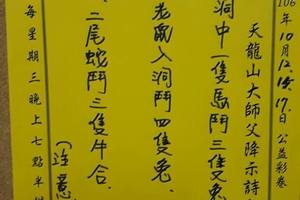 106年10月12.15.17.日公益彩卷
天龍山大師父降示詩
洞中一隻馬鬥三隻兔
老鼠入洞鬥四隻兔.
.二尾蛇鬥三隻牛合.
(注意
每星期三晚上七點半